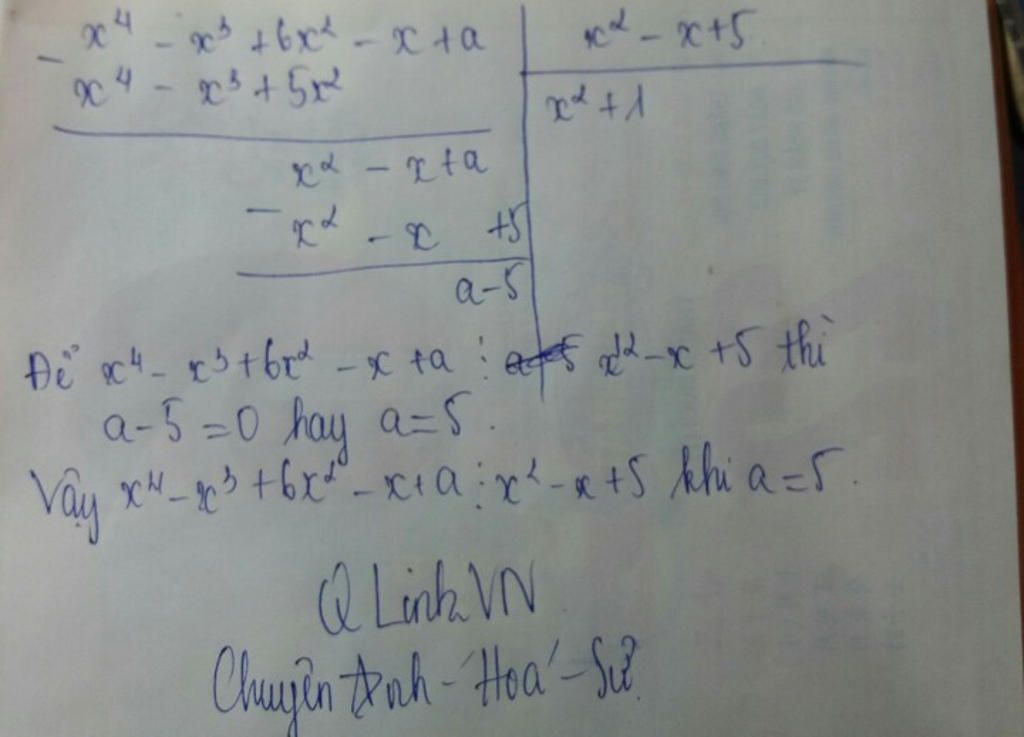 x⁴ - x³ + 6x² - x + a | x² - x + 5
- x⁴ - x³ + 5x² | x² + 1
x² - x + a
- x² - x + 5
a - 5
Để x⁴ - x³ + 6x² - x + a ⋮ x² - x + 5 thì
a - 5 = 0 hay a = 5.
Vậy x⁴ - x³ + 6x² - x + a ⋮ x² - x + 5 khi a = 5.
Q Link VN
Chuyên Anh - Hoá - Sử.